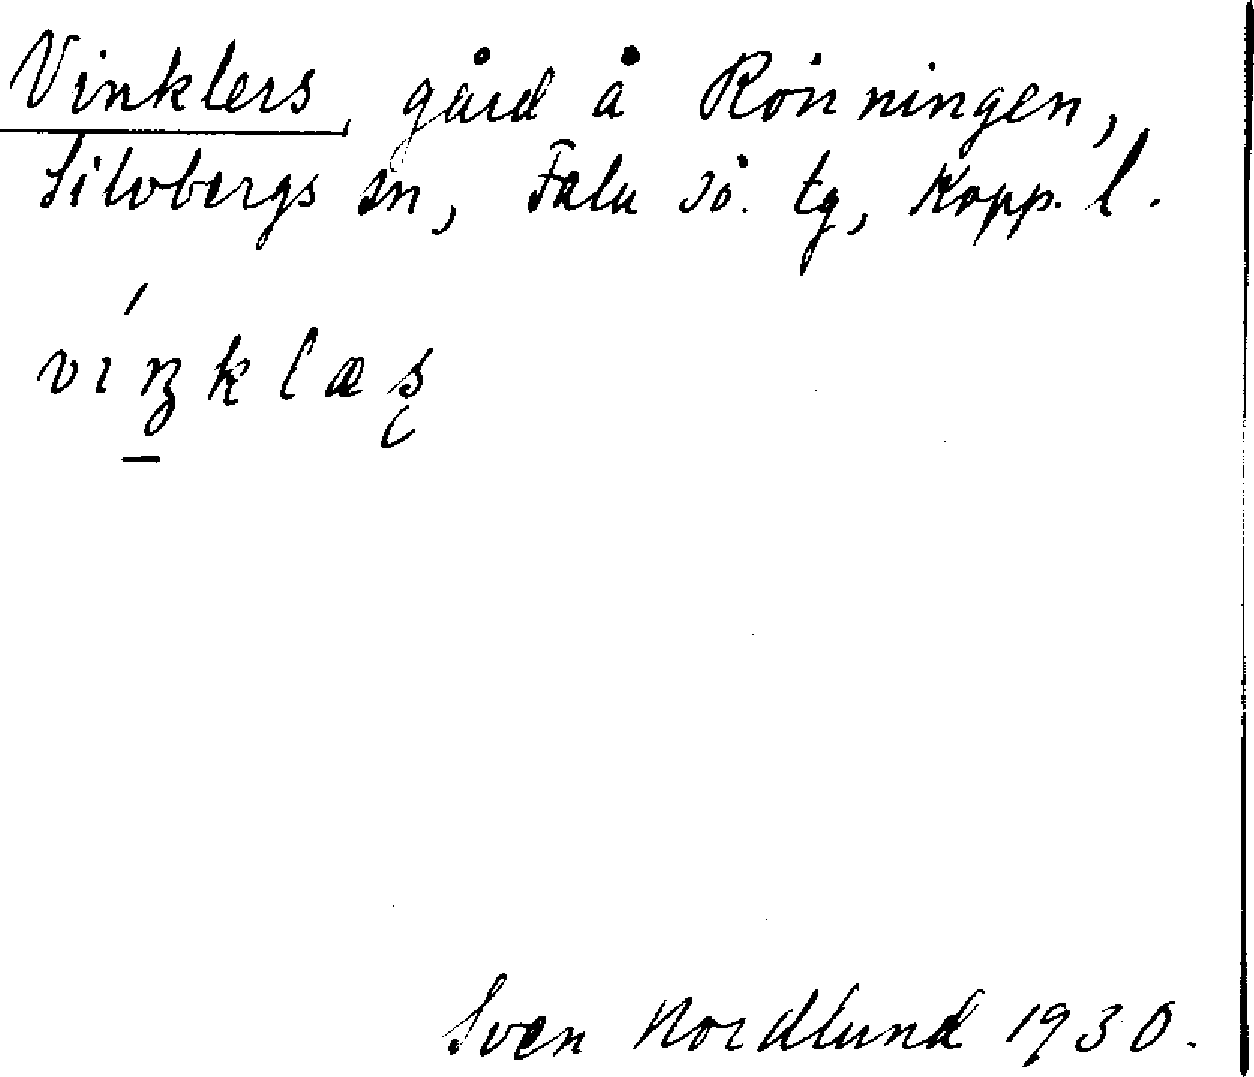 Vinklers, gård å Rönningen,
Silvbergs sn, Falu sö. tg, Kopp. l.
Sven Nordlund 1930.